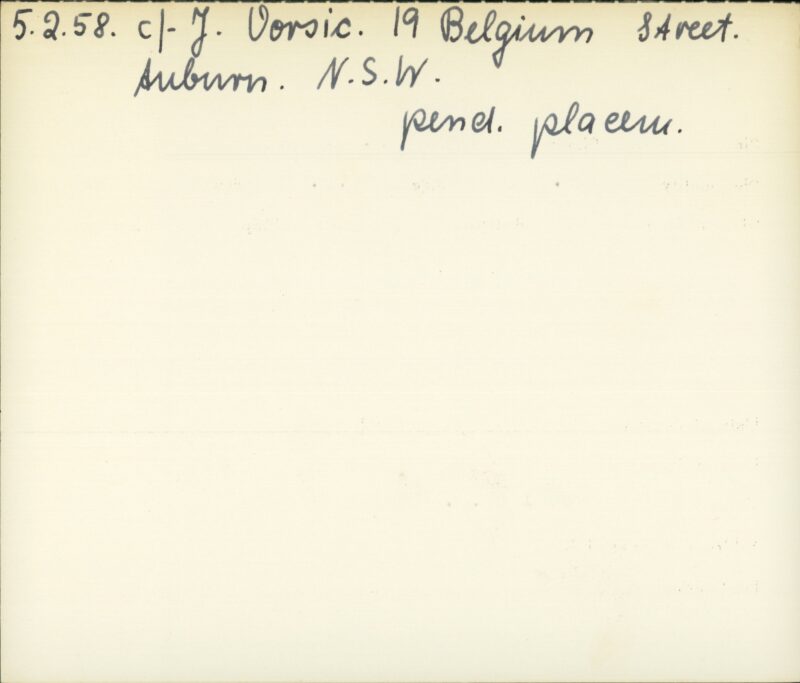 5.2.58. c/- J. Vorsic. 19 Belgium Street.
Auburn. N.S.W.
pend. placem.